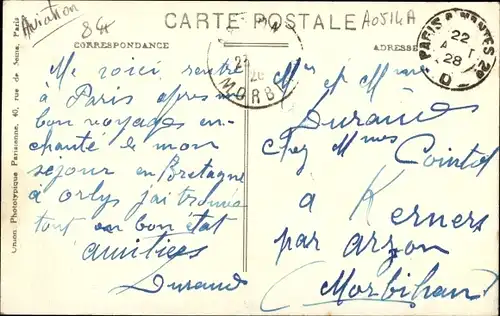 Aviation
84
CARTE POSTALE
A0514A
CORRESPONDANCE
ADRESSE
PARIS A NANTES 2°
22
28
D
23
28
MORB
Union Phototypique Parisienne, 40, rue de Seine, Paris
Me voici rentré
à Paris après
bon voyages en-
chanté de mon
séjour en Bretagne
à orly j'ai trouvé
tout en bon état
amitiés
Durand
Mr et Mme
Durand
chez Mmes
Cointol
à Kerners
par arzon
(Morbihan)